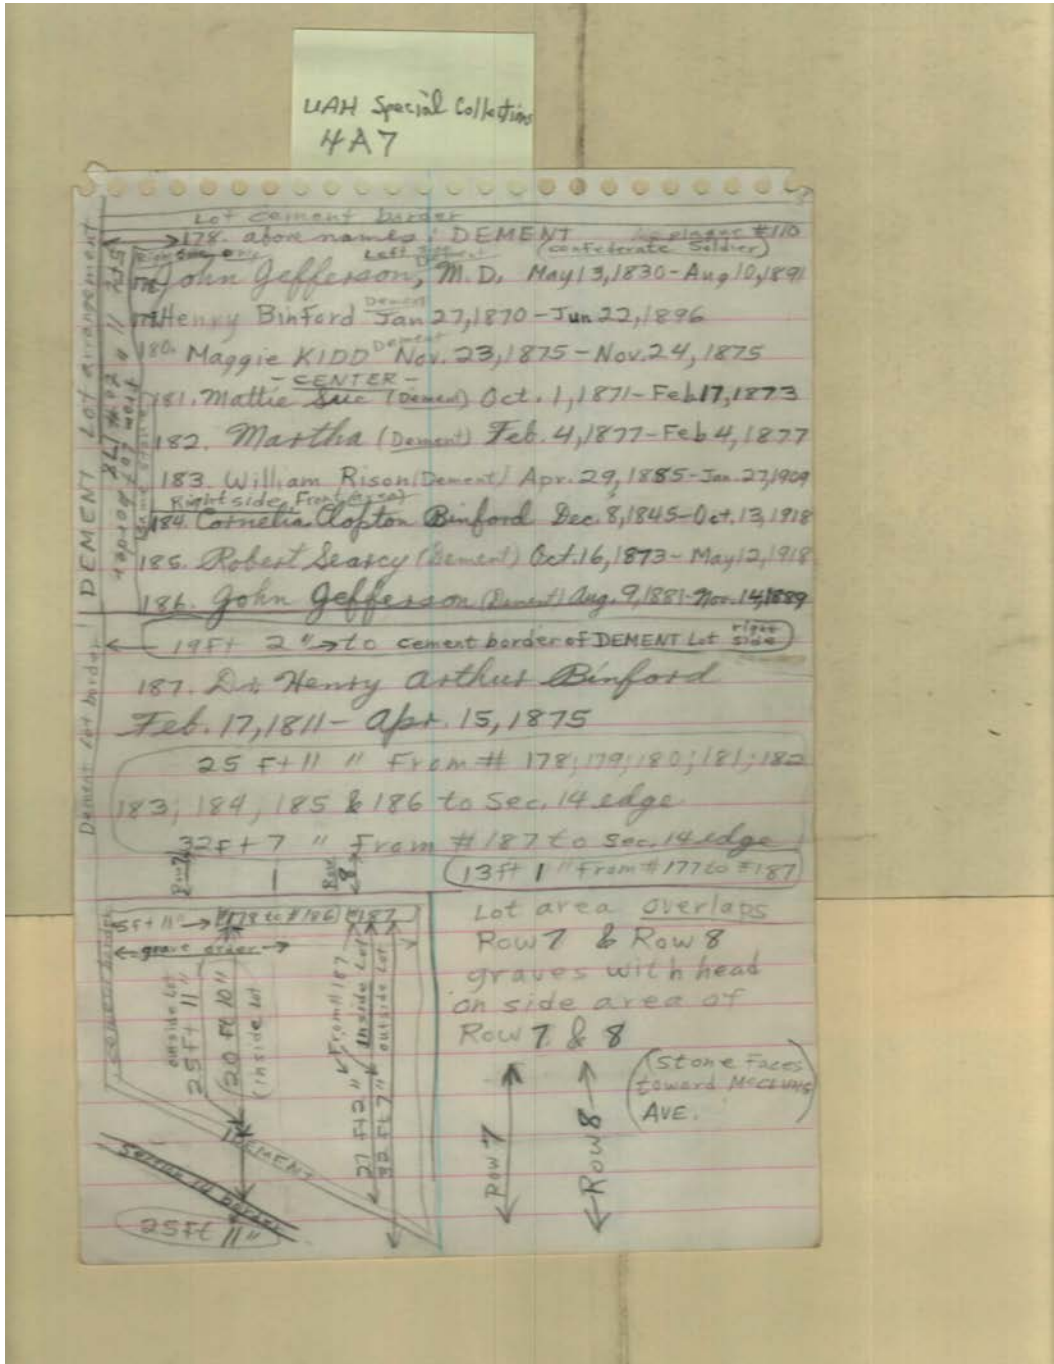 UAH Special Collections
4A7
Lot cement border
178. above names: DEMENT plaque #110
Right side only Left side Dement (confederate Soldier)
John Jefferson, M.D. May 13, 1830-Aug 10, 1891
Henry Binford Dement Jan 27, 1870-Jun 22, 1896
180. Maggie KIDD Dement Nov. 23, 1875-Nov. 24, 1875
- CENTER -
181. Mattie Sue (Dement) Oct. 1, 1871-Feb 17, 1873
182. Martha (Dement) Feb. 4, 1877-Feb 4, 1877
183. William Rison (Dement) Apr. 29, 1885-Jan. 27, 1909
Right side, Front (area)
184. Cornelia Clopton Binford Dec. 8, 1845-Oct. 13, 1918
185. Robert Searcy (Dement) Oct. 16, 1873-May 12, 1918
186. John Jefferson (Dement) Aug. 9, 1881-Nov. 14, 1889
DEMENT Lot arrangement
19 Ft 2 " → to cement border of DEMENT Lot right side
187. Dr. Henry Arthur Binford
Feb. 17, 1811- Apr. 15, 1875
Dement Lot border
25 Ft 11 " From # 178; 179; 180; 181; 182
183; 184, 185 & 186 to Sec. 14 edge
32 Ft 7 " From #187 to Sec. 14 edge
13 ft 1 " From #177 to #187
Row 7
Row 8
5 Ft 11" → #178 to #186 #187
← grave order →
cement border
outside Lot
25 Ft 11"
20 Ft 10"
(inside Lot)
From #187
27 Ft 2" inside Lot
32 Ft 7" outside Lot
DEMENT
Section 14 border
25 Ft 11"
Lot area overlaps
Row 7 & Row 8
graves with head
on side area of
Row 7 & 8
Row 7
Row 8
(Stone Faces
toward McCLUNG
AVE.)